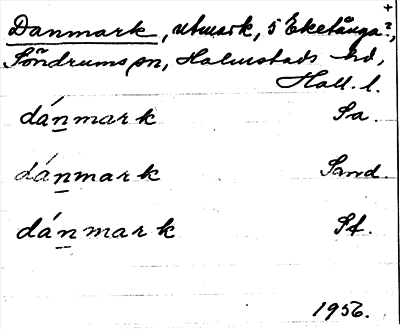 +
Danmark, utmark, 5 Eketånga?,
Söndrums sn, Halmstads hd,
Hall. l.
dánmark Sa.
dánmark Sand.
dánmark St.
1956.